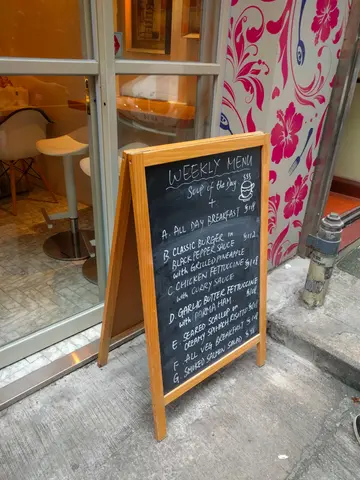 WEEKLY MENU
Soup of the day
+
A. ALL DAY BREAKFAST $118
B. CLASSIC BURGER in $112
BLACK PEPPER SAUCE
with GRILLED PINEAPPLE
C. CHICKEN FETTUCCINE $108
with CURRY SAUCE
D. GARLIC BUTTER FETTUCCINE
with PARMA HAM
E SEARED SCALLOP on
CREAMY SAFFRON RISOTTO
F ALL VEG BREAKFAST
G SMOKED SALMON SALAD